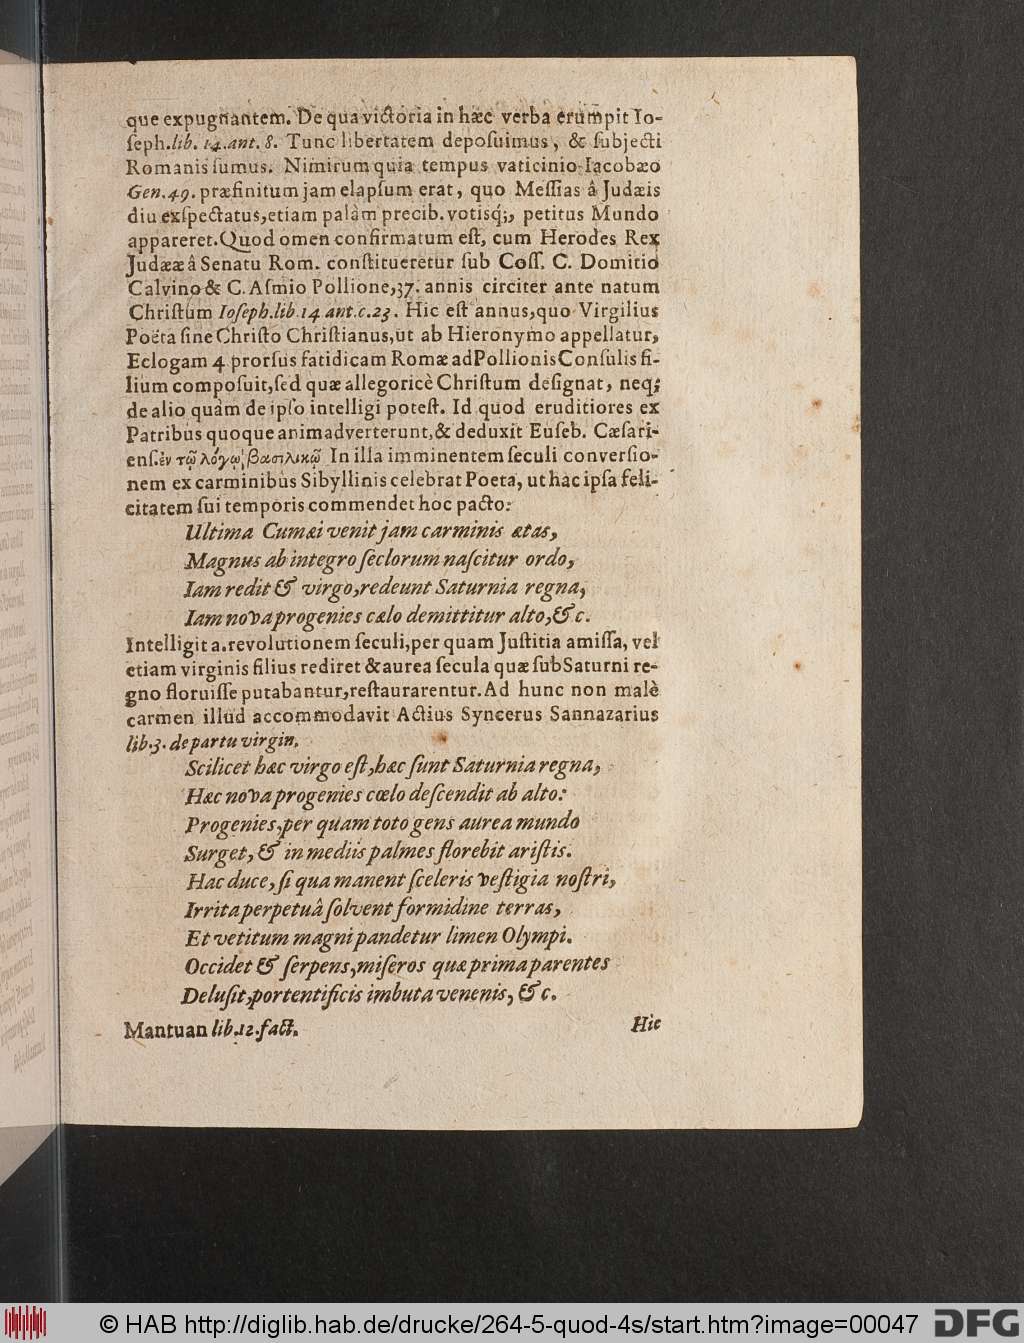 que expugnantem. De qua victoria in hæc verba erumpit Io-
ſeph. lib. 14. ant. 8. Tunc libertatem depoſuimus, & ſubjecti
Romanis ſumus. Nimirum quia tempus vaticinio Iacobæo
Gen. 49. præfinitum jam elapſum erat, quo Meſſias â Judæis
diu exſpectatus, etiam palàm precib. votisq́;, petitus Mundo
appareret. Quod omen confirmatum eſt, cum Herodes Rex
Judææ â Senatu Rom. conſtitueretur ſub Coſſ. C. Domitio
Calvino & C. Aſinio Pollione, 37. annis circiter ante natum
Chriſtum Ioſeph. lib. 14 ant. c. 23. Hic eſt annus, quo Virgilius
Poëta ſine Chriſto Chriſtianus, ut ab Hieronymo appellatur,
Eclogam 4 prorſus fatidicam Romæ ad Pollionis Conſulis fi-
lium compoſuit, ſed quæ allegoricè Chriſtum deſignat, neq;
de alio quàm de ipſo intelligi poteſt. Id quod eruditiores ex
Patribus quoque animadverterunt, & deduxit Euſeb. Cæſari-
enſ. ἐν τῷ λόγῳ βασιλικῷ In illa imminentem ſeculi converſio-
nem ex carminibus Sibyllinis celebrat Poeta, ut hac ipſa feli-
citatem ſui temporis commendet hoc pacto:
Ultima Cumæi venit jam carminis ætas,
Magnus ab integro ſeclorum naſcitur ordo,
Iam redit & virgo, redeunt Saturnia regna,
Iam nova progenies cælo demittitur alto, &c.
Intelligit a. revolutionem ſeculi, per quam Juſtitia amiſſa, vel
etiam virginis filius rediret & aurea ſecula quæ ſub Saturni re-
gno floruiſſe putabantur, reſtaurarentur. Ad hunc non malè
carmen illud accommodavit Actius Syncerus Sannazarius
lib. 3. de partu virgin.
Scilicet hæc virgo eſt, hæc ſunt Saturnia regna,
Hæc nova progenies cœlo deſcendit ab alto:
Progenies, per quam toto gens aurea mundo
Surget, & in mediis palmes florebit ariſtis.
Hac duce, ſi qua manent ſceleris veſtigia noſtri,
Irrita perpetuâ ſolvent formidine terras,
Et vetitum magni pandetur limen Olympi.
Occidet & ſerpens, miſeros quæ prima parentes
Deluſit, portentificis imbuta venenis, &c.
Mantuan lib. 12. faſt.
Hic
© HAB http://diglib.hab.de/drucke/264-5-quod-4s/start.htm?image=00047
DFG